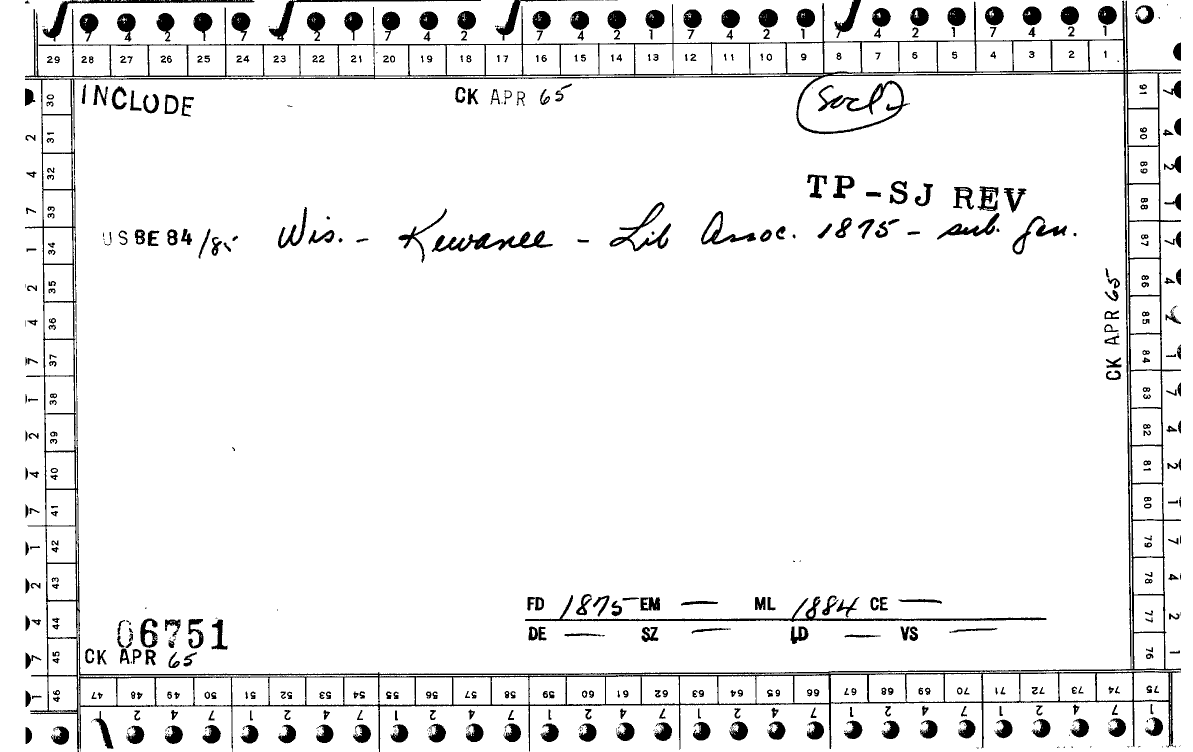 7 4 2 1 7 4 2 1 7 4 2 1 7 4 2 1 7 4 2 1 7 4 2 1 7 4 2 1
29 28 27 26 25 24 23 22 21 20 19 18 17 16 15 14 13 12 11 10 9 8 7 6 5 4 3 2 1
INCLUDE
CK APR 65
TP-SJ REV
USBE 84/85 Wis. - Kewanee - Lib Assoc. 1875 - sub. gen.
CK APR 65
FD 1875 EM — ML 1884 CE —
DE — SZ — LD — VS —
06751
CK APR 65
30 31 32 33 34 35 36 37 38 39 40 41 42 43 44 45 46
2 4 7 1 2 4 7 1 2 4 7 1 2 4 7 1
91 90 89 88 87 86 85 84 83 82 81 80 79 78 77 76
47 48 49 50 51 52 53 54 55 56 57 58 59 60 61 62 63 64 65 66 67 68 69 70 71 72 73 74 75
1 2 4 7 1 2 4 7 1 2 4 7 1 2 4 7 1 2 4 7 1 2 4 7 1 2 4 7 1